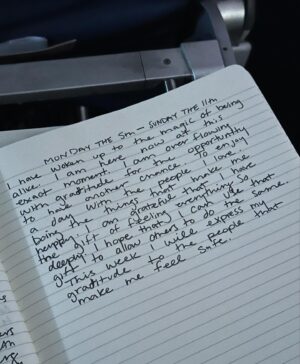 MONDAY THE 5TH – SUNDAY THE 11th
I have woken up to the magic of being
alive. I am here now at this
exact moment. I am overflowing
with gratitude for the opportunity
to have another chance to enjoy
a day with the people I love,
doing things that make me
happy. I am grateful that I have
the gift of feeling everything so
deeply. I hope that I can use that
gift to allow others to do the same.
This week I will express my
gratitude to the people that
make me feel safe.